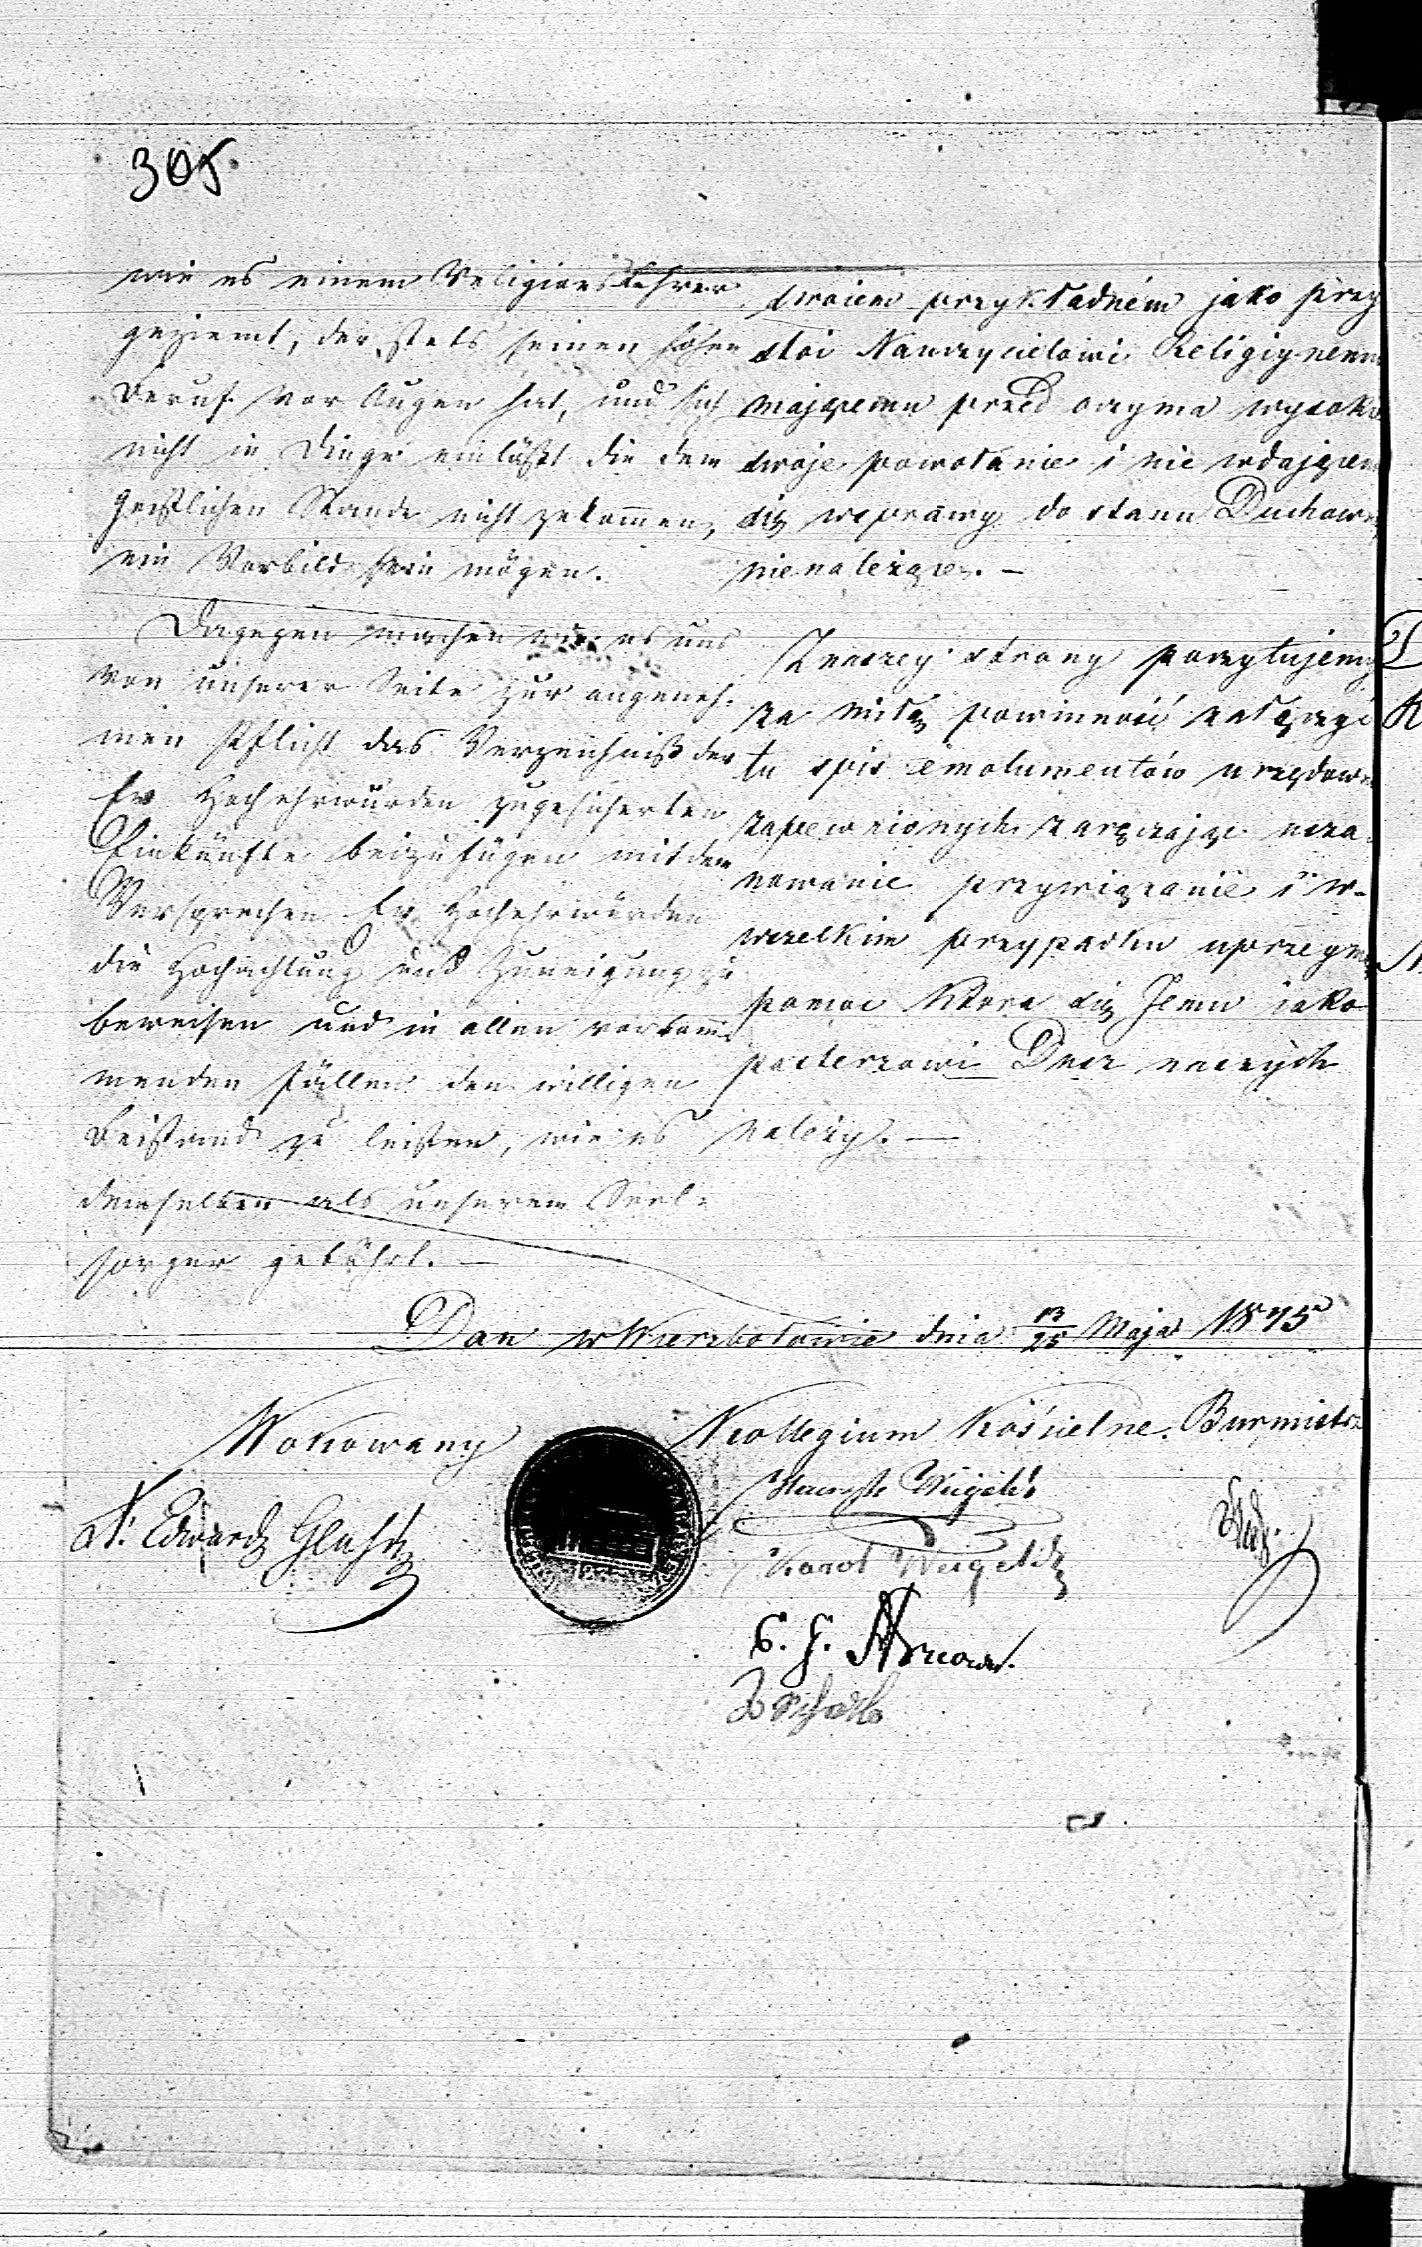 305.
wie es einem Religionslehrer
geziemt, der stets seinen hohen
Beruf vor Augen hat, und sich
nicht in Dinge einläßt die dem
geistlichen Stande nicht zukommen,
ein Vorbild sein mögen.
Dagegen machen wir es uns
von unserer Seite zur angeneh-
men Pflicht das Verzeichniß der
Ew Hochehrwürden zugesicherten
Einkünfte beizufügen mit dem
Versprechen Ew Hochehrwürden
die Hochachtung und Zuneigung zu
beweisen und in allen vorkom-
menden Fällen den willigen
Beistand zu leisten, wie es
demselben als unserem Seel-
sorger gebührt. —
swoiem przykładném jako przy
stoi Nauczycielowi Religiynemu
mającemu przed oczyma wysokie
swoje powołanie i nie wdającem
się wsprawy do stanu Duchowne
nienależące. —
Znaszey strony poczytujemy
za miłą powinność załączyć
tu spis emolumentów urzędown
zapewnionych zaręczając usza-
nowanie przywiązanie i w-
wszelkim przypadku uprzeyma
pomoc która się Jemu jako
pasterzowi Dusz naszych
należy. —
Dan w Wierzbołowie dnia 13/25 Maja 1875
Wokowany
Kollegium Kościelne. Burmistrz
Edward
Karol Weigelt